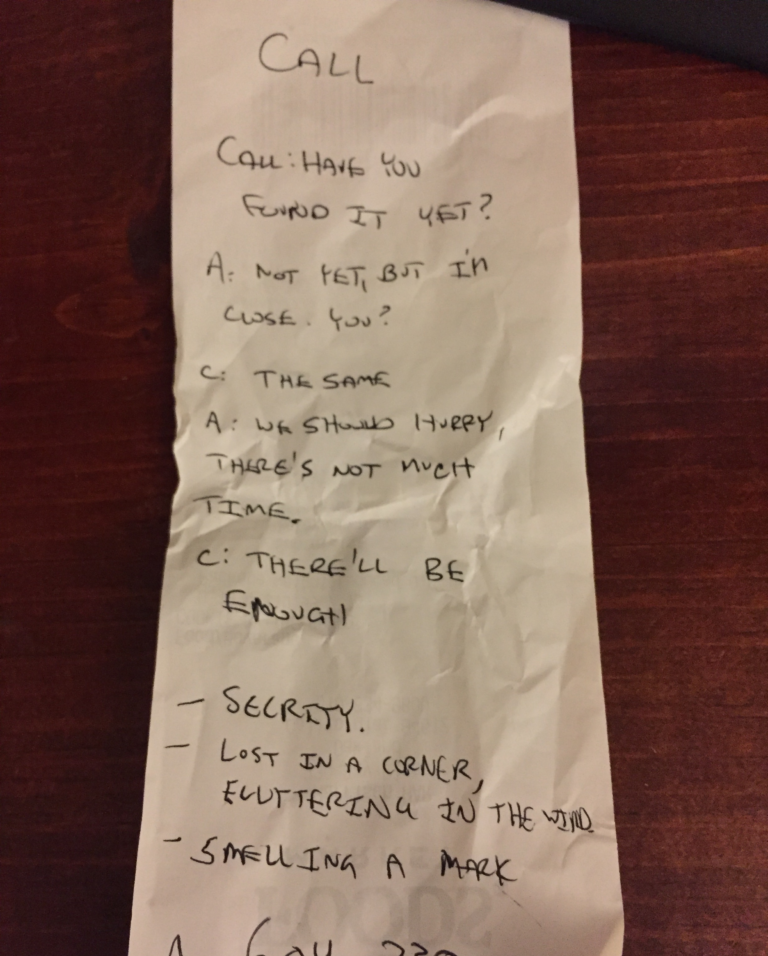 CALL
CALL: HAVE YOU
FOUND IT YET?
A: NOT YET, BUT I'M
CLOSE. YOU?
C: THE SAME
A: WE SHOULD HURRY,
THERE'S NOT MUCH
TIME.
C: THERE'LL BE
ENOUGH
- SECRITY.
- LOST IN A CORNER,
FLUTTERING IN THE WIND
- SMELLING A MARK
FOODS